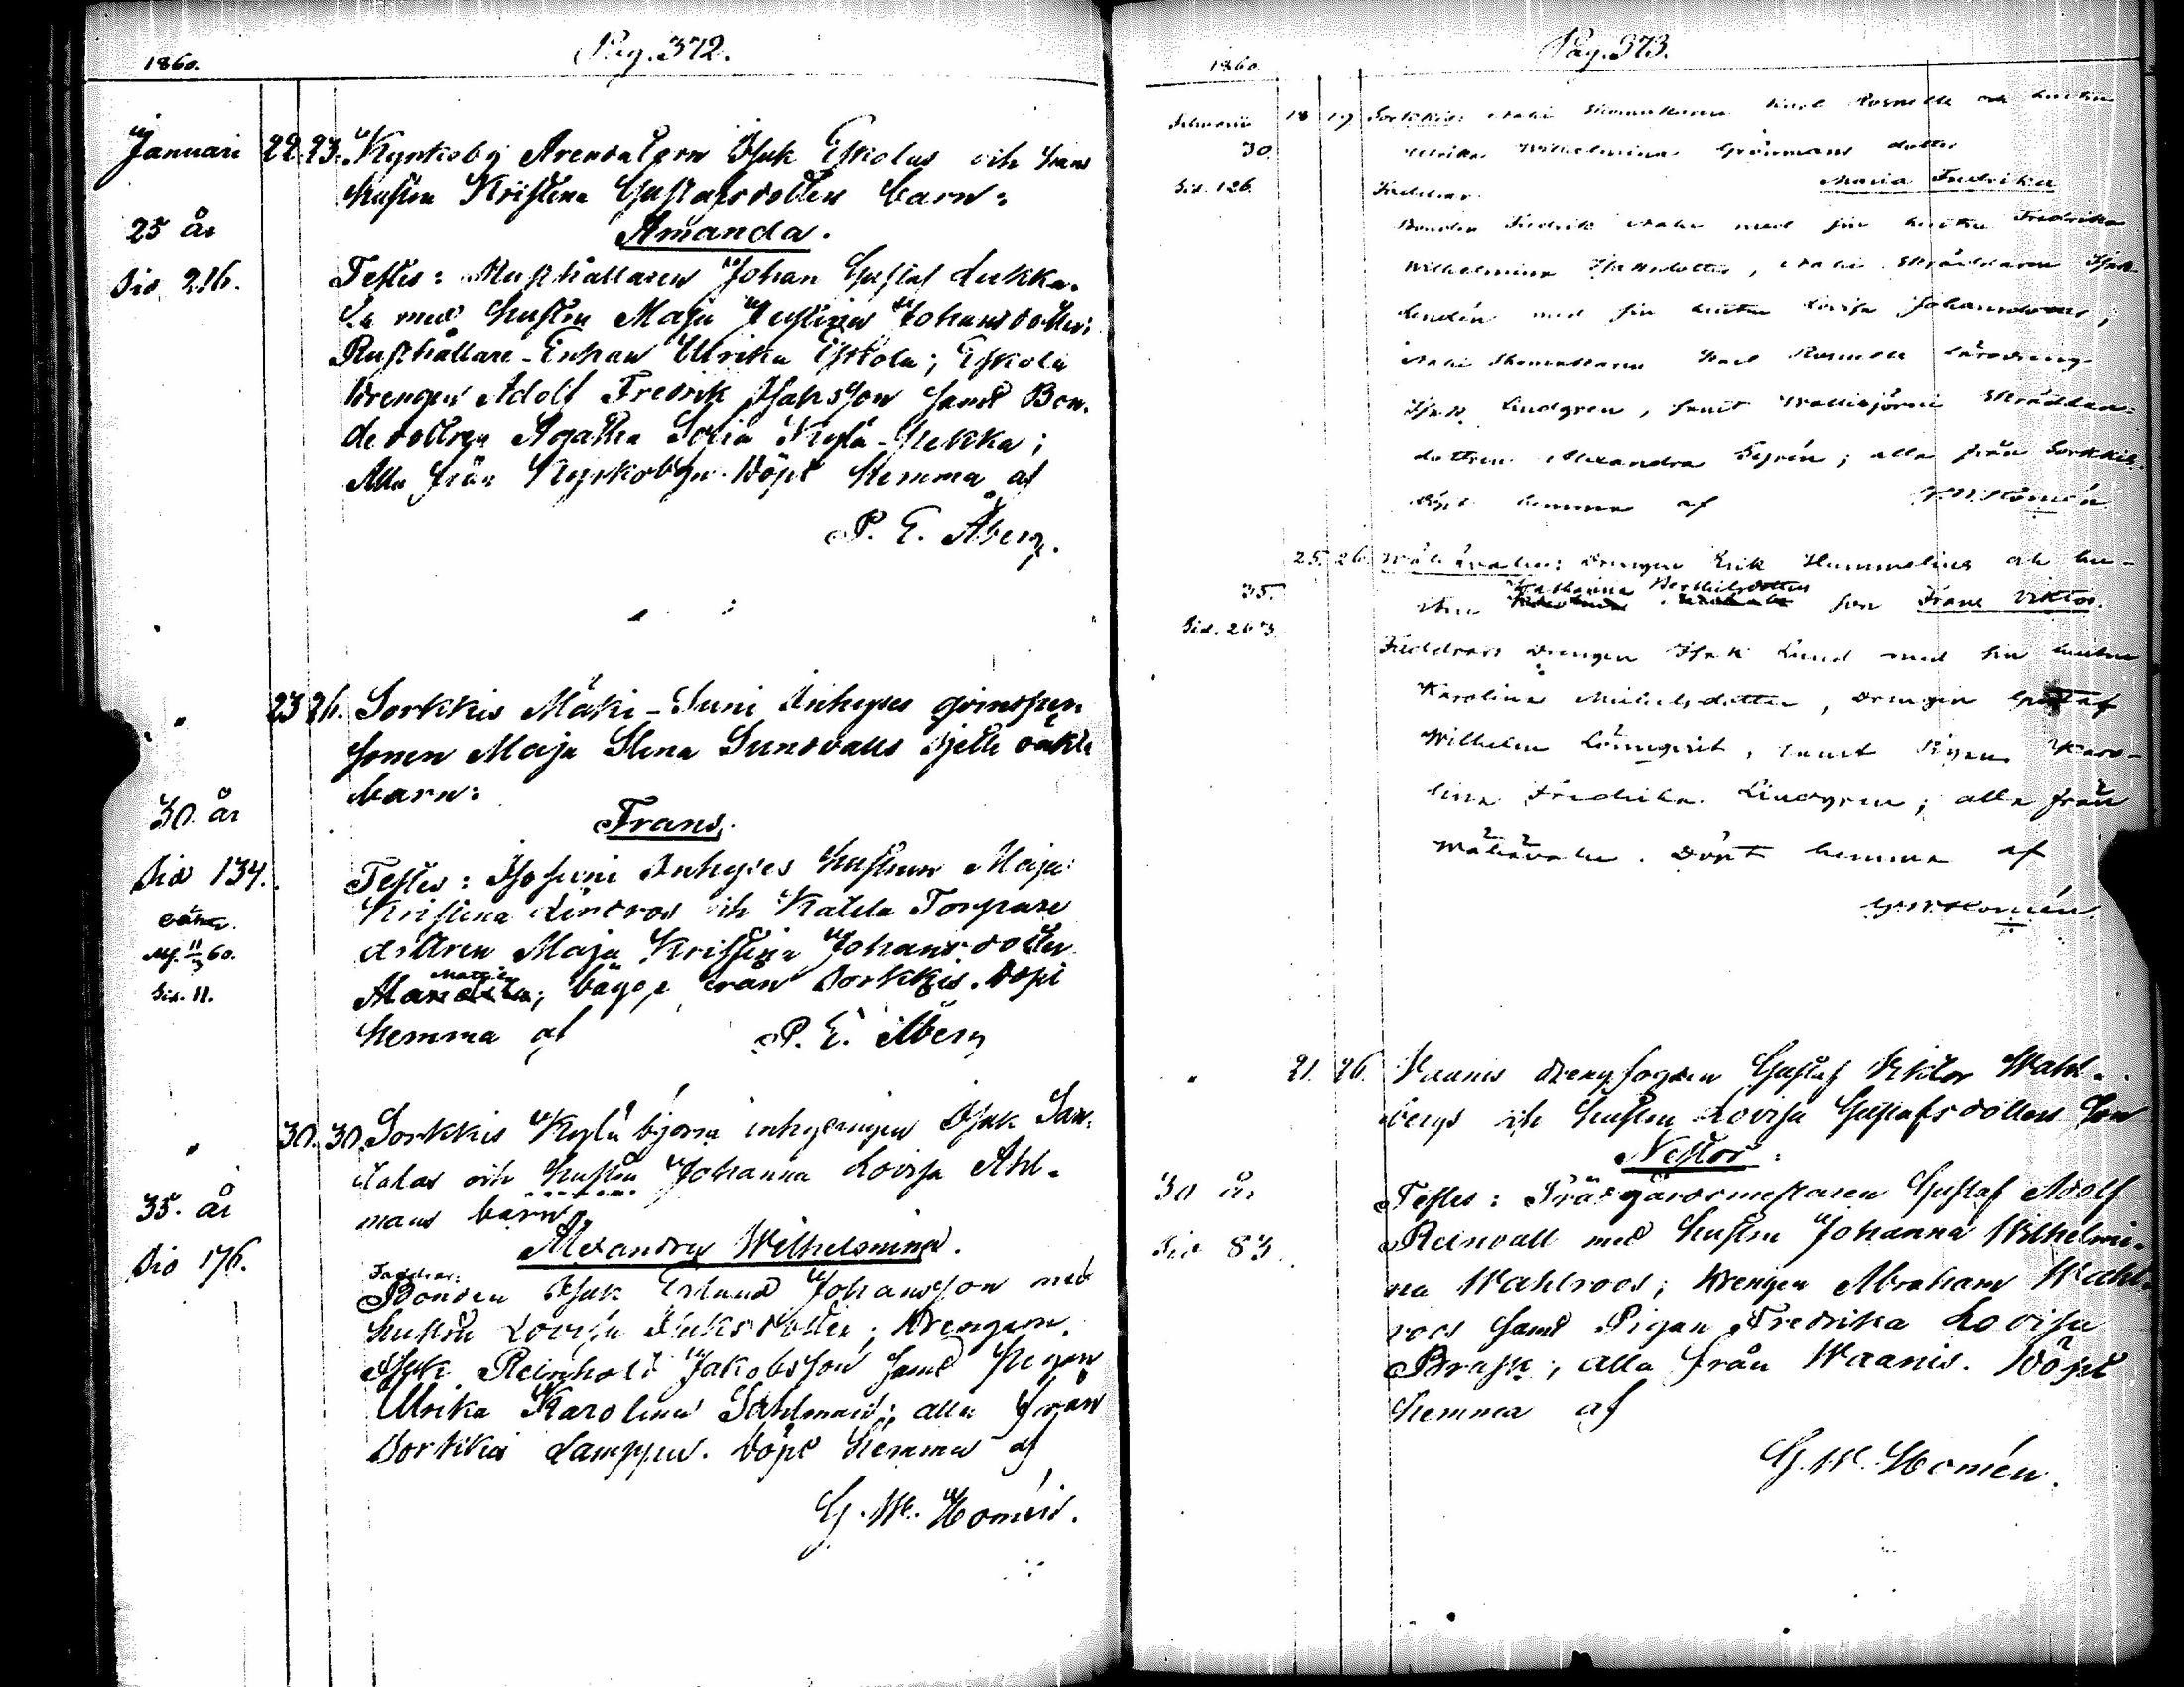 1860.
Pag. 372.
Januari 22. 23. Kyrkoby Arendatorn Isak Eskolas och hans
hustru Kristina Gustafsdotters barn:
25 år
Amanda.
Sid. 216.
Testes: Rusthållaren Johan Gustaf Lukka-
la med hustru Maja Justina Johansdotter;
Rusthållare-Enkan Ulrika Eskola; Eskola
drengen Adolf Fredrik Isaksson samt Bon-
dedottren Agatha Sofia Kylä-Hekka;
Alla från Kyrkobyn. Döpt hemma af
P. E. Åberg.
" 23 26. Sorkkis Mäki-Suni Inhyses qvinspersonen
Maja Stena Sundvalls oäkta
barn:
30 år
Frans.
Sid 134.
Testes: Inhyses hustrun Maja
Kristina Lindros och Katila Torpare
dottren Maja Kristina Johansdotter
oäkta.
Afl. 11/3 60.
Mattila; bägge från Sorkkis. Döpt
Sid. 11.
hemma af P. E. Åberg
" 30. 30. Sorkkis Kyläbjörni inhysingen Isak San-
talas och hustru Johanna Lovisa Ahl-
mans barn
35. år
Alexandra Wilhelmina.
Sid 176.
Faddrar:
Bonden Isak Erland Johansson med
hustru Lovisa Isaksdotter; Drengen
Isak Reinhold Jakobsson samt Pigan
Ulrika Karolina Sahlman; alla från
Sorkkis Lamppu. Döpt hemma af
G. W. Homén.
1860.
Pag. 373.
Februari 18 19 Sorkkis: Mäki Skomakaren Karl Rosnells och hustrun
30.
Ulrika Wilhelmina Grönmans dotter
Maria Fredrika
Sid. 126.
Faddrar:
Bonden Fredrik Mäki med sin hustru Fredrika
Wilhelmina Isaksdotter, Mäki Skräddaren Isak
Lindén med sin hustru Lovisa Johansdotter;
Mäki Skomakaren Karl Rosnells lärodreng
Isak Lindgren, samt Wallisjörni Skräddare-
dottren Alexandra; alla från Sorkkis.
Döpt hemma af G. W. Homén.
25. 26. Drengen Erik Hummelins och hu-
35.
strun Katharina Bertilsdotters son Frans Viktor.
Sid. 263.
Faddrar: Drengen Isak Lund med sin hustru
Karolina Michelsdotter, Drengen Gustaf
Wilhelm Lönnqvist, samt Pigan Karo-
lina Fredrika Lindgren; alla från
Döpt hemma af
G. W. Homén.
" 21. 26. Waanis drengfogden Gustaf Viktor Wahl-
bergs och hustru Lovisa Gustafsdotters Son
Nestor:
30 år
Testes: Trädgårdsmestaren Gustaf Adolf
Sid 83.
Reinvall med hustru Johanna Wilhelmi-
na Wahlroos; Drengen Abraham Wahl-
roos samt Pigan Fredrika Lovisa
Brask; alla från Waanis. Döpt
hemma af
G. W. Homén.